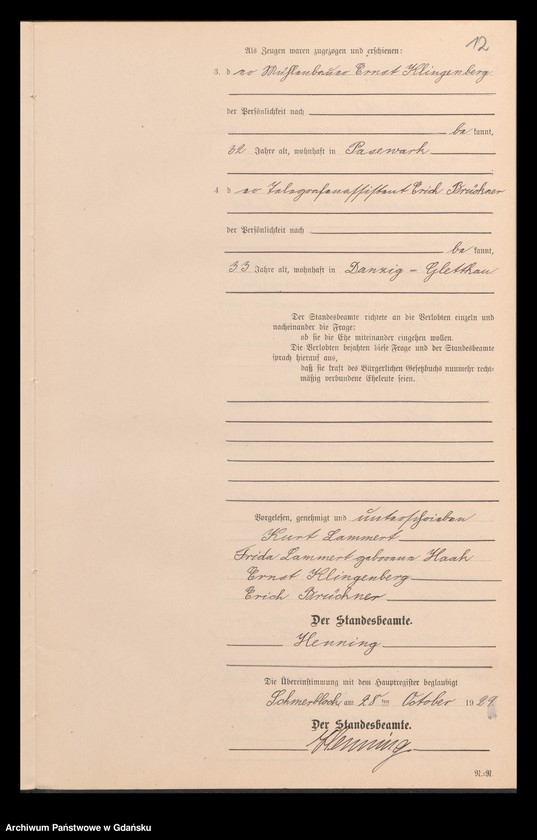 12
Als Zeugen waren zugezogen und erschienen:
3. d er Mühlenbauer Ernst Klingenberg
der Persönlichkeit nach
be kannt,
32 Jahre alt, wohnhaft in Pasewark
4 d er Telegrafenassistent Erich Brückner
der Persönlichkeit nach
be kannt,
33 Jahre alt, wohnhaft in Danzig - Glettkau
Der Standesbeamte richtete an die Verlobten einzeln und
nacheinander die Frage:
ob sie die Ehe miteinander eingehen wollen.
Die Verlobten bejahten diese Frage und der Standesbeamte
sprach hierauf aus,
daß sie kraft des Bürgerlichen Gesetzbuchs nunmehr recht-
mäßig verbundene Eheleute seien.
Vorgelesen, genehmigt und unterschrieben
Kurt Lammert
Frida Lammert geborene Haak
Ernst Klingenberg
Erich Brückner
Der Standesbeamte.
Henning
Die Übereinstimmung mit dem Hauptregister beglaubigt
Schmerblock, am 28 ten October 19 29.
Der Standesbeamte.
Henning
N.-N.
Archiwum Państwowe w Gdańsku